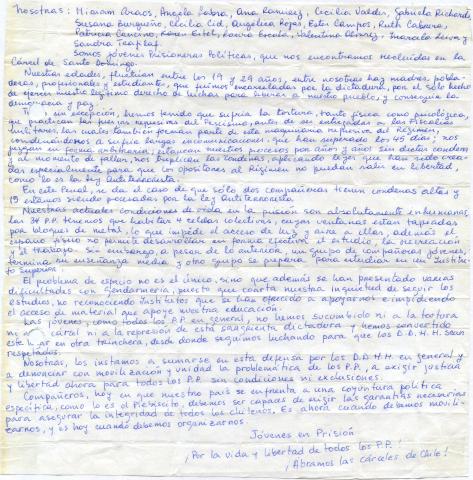 Nosotras: Miriam Araos, Angela Jobra, Ana Ramirez, Cecilia Valdés, Gabriela Richards
Susana Burgueño, Cecilia Cid, Angelica Rojas, Ester Campos, Ruth Cabrera,
Patricia Cancino, Karen Eitel, Laura Escola, Valentina Alvarez, Marcela Leiva y
Sandra
Somos jóvenes Prisioneras Políticas, que nos encontramos recluídas en la
Cárcel de Santo Domingo.
Nuestras edades, fluctúan entre los 19 y 29 años, entre nosotras hay madres, pobla-
doras, profesionales y estudiantes, que fuimos encarceladas por la dictadura, por el sólo hecho
de ejercer nuestro legítimo derecho de luchar para liberar a nuestro pueblo, y conseguir la
democracia y paz.
sin excepción, hemos tenido que sufrir la tortura, tanto física como psicológica,
que practican las fuerzas represivas del Fascismo, antes de ser entregadas a las Fiscalías
Militares, las cuales también forman parte de esta maquinaria represiva del Régimen,
condenándonos a sufrir largas incomunicaciones que han superado los 45 días; nos
juzgan en forma arbitraria, estancan nuestros procesos por años y años sin dictar condena
y al momento de fallar, nos triplican las condenas, aplicando leyes que han sido crea-
das especialmente para que los opositores al Régimen no puedan salir en libertad,
como lo es la ley antiterrorista.
En este Penal, se da el caso de que sólo dos compañeras tienen condenas altas y
19 estamos siendo procesadas por la ley Antiterrorista.
Nuestras actuales condiciones de vida en la prisión son absolutamente inhumanas,
las 34 P.P. tenemos que habitar 4 celdas colectivas, cuyas ventanas están tapadas
por bloques de metal, lo que impide el acceso de luz y aire a ellas, además el
espacio físico no permite desarrollar en forma efectiva el estudio, la recreación
y el trabajo. Sin embargo, a pesar de lo anterior, un grupo de compañeras jóvenes,
termina su enseñanza media y otro grupo se prepara para estudiar en un Instituto
Superior
El problema de espacio no es el único, sino que además se han presentado varias
dificultades con Gendarmería, puesto que coarta nuestra inquietud de seguir los
estudios, no reconociendo institutos que se han ofrecido a apoyarnos e impidiendo
el acceso de material que apoye nuestra educación.
Las jóvenes, como todos los P.P. en general, no hemos sucumbido ni a la tortura
ni a la cárcel ni a la represión de esta sangrienta dictadura y hemos convertido
este lugar en otra trinchera, desde donde seguimos luchando para que los DD.HH. sean
respetados.
Nosotras, los instamos a sumarse en esta defensa por los DD.HH. en general y
a denunciar con movilización y unidad la problemática de los P.P., a exigir justicia
y libertad ahora para todos los P.P. sin condiciones ni exclusiones.
Compañeros, hoy en que nuestro país se enfrenta a una coyuntura política
específica, como lo es el Plebiscito, debemos ser capaces de exigir las garantías necesarias
para asegurar la integridad de todos los chilenos. Es ahora cuando debemos movili-
zarnos, y es hoy cuando debemos organizarnos.
Jóvenes en Prisión
¡Por la vida y libertad de todos los P.P.!
¡Abramos las cárceles de Chile!